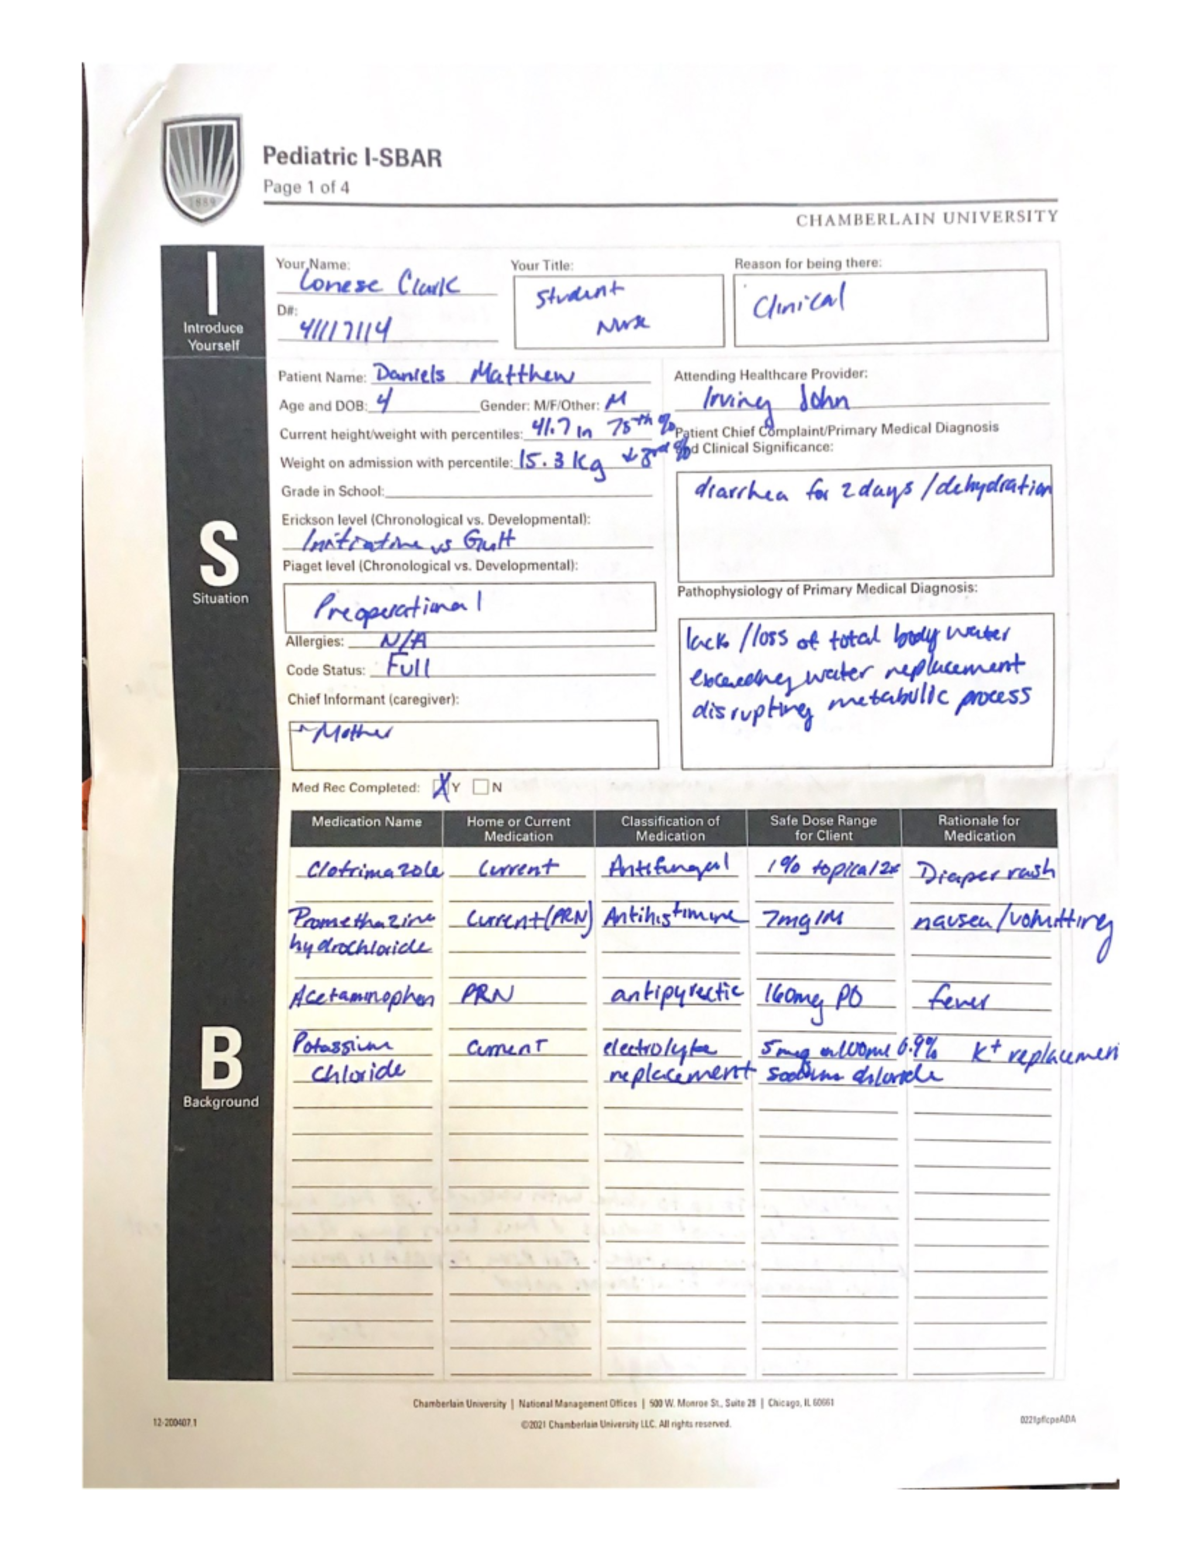 1889
Pediatric I-SBAR
Page 1 of 4
CHAMBERLAIN UNIVERSITY
I
Introduce
Yourself
Your Name:
Lonese Clark
D#:
41117114
Your Title:
Student
Nurse
Reason for being there:
Clinical
S
Situation
Patient Name: Daniels Matthew
Age and DOB: 4 Gender: M/F/Other: M
Current height/weight with percentiles: 41.7 in 75th %
Weight on admission with percentile: 15.3 kg ↓ 3rd %
Grade in School:
Erickson level (Chronological vs. Developmental):
Initiative vs Guilt
Piaget level (Chronological vs. Developmental):
Preoperational
Allergies: N/A
Code Status: Full
Chief Informant (caregiver):
Mother
Attending Healthcare Provider:
Irving John
Patient Chief Complaint/Primary Medical Diagnosis
nd Clinical Significance:
diarrhea for 2 days /dehydration
Pathophysiology of Primary Medical Diagnosis:
lack /loss of total body water
exceeding water replacement
disrupting metabolic process
B
Background
Med Rec Completed: X Y N
Medication Name Home or Current Medication Classification of Medication Safe Dose Range for Client Rationale for Medication
Clotrimazole Current Antifungal 1% topical/2x Diaper rash
Promethazine Current (PRN) Antihistimine 7mg IM nausea/vomitting
hydrochloride
Acetaminophen PRN antipyrectic 160mg PO fever
Potassium Current electrolyte 5 in 100ml 0.9% K+ replacemen
Chloride replacement sodium chloride
Chamberlain University | National Management Offices | 500 W. Monroe St., Suite 28 | Chicago, IL 60661
12-200407.1 ©2021 Chamberlain University LLC. All rights reserved. 0221pflcpeADA